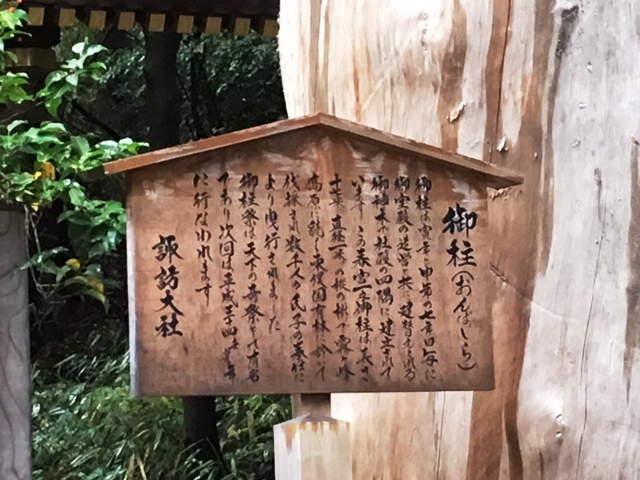 御柱(おんばしら)
御柱は寅年と申年の七年目毎に
御宝殿の造営と共に建替えられる
御神木で社殿の四隅に建立されて
います この春宮一之御柱は長さ
十七米 直径一米の樅の樹で霧ヶ峰
高原に続く東俣国有林に於いて
伐採され数千人の氏子の奉仕に
より曳行されました
御柱祭は天下の奇祭として有名
であり次回は平成三十四年寅年
に行なわれます
諏訪大社